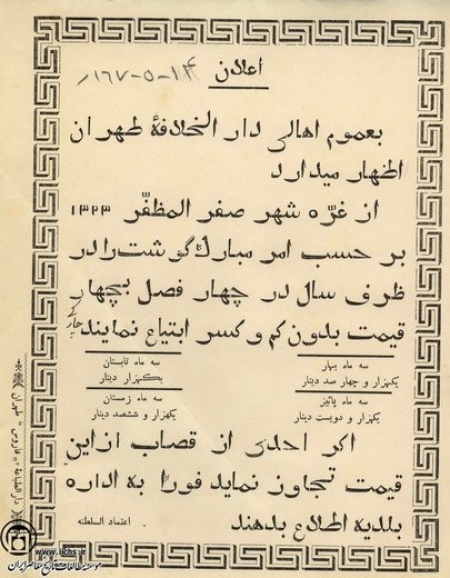 اعلان
۱۶۷-۵-۱۴
بعموم اهالی دار الخلافهٔ طهران
اظهار میدارد
از غرّه شهر صفر المظفّر ۱۳۲۳
بر حسب امر مبارک گوشت را در
ظرف سال در چهار فصل بچهار
قیمت بدون کم و کسر ابتیاع نمایند
سه ماه بهار
یکهزار و چهار صد دینار
سه ماه تابستان
یکهزار دینار
سه ماه پائیز
یکهزار و دویست دینار
سه ماه زمستان
یکهزار و ششصد دینار
اگر احدی از قصاب از این
قیمت تجاوز نماید فوراً به اداره
بلدیه اطلاع بدهند
اعتماد السلطنه
دار الطباعة „ فاروس “ طهران
www.iichs.ir
موسسه مطالعات تاریخ معاصر ایران